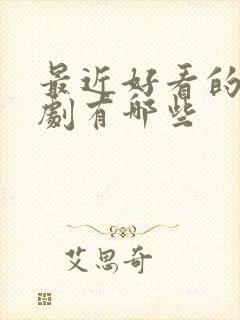 最近好看的
劇有哪些
艾思奇